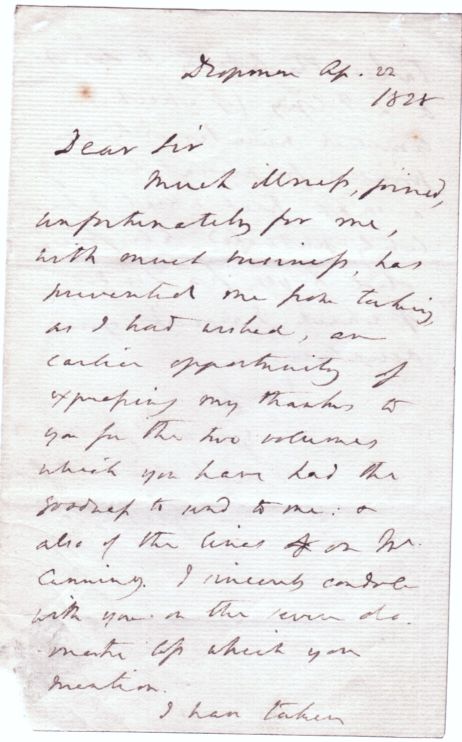 Dropmore Ap. 22
1828
Dear Sir
Much illness, joined,
unfortunately for me,
with much business, has
prevented me from taking
as I had wished, an
earlier opportunity of
expressing my thanks to
you for the two volumes
which you have had the
goodness to send to me: &
also of the lines on Mr.
Canning. I sincerely condole
with you on the severe do-
mestic loss which you
mention.
I have taken